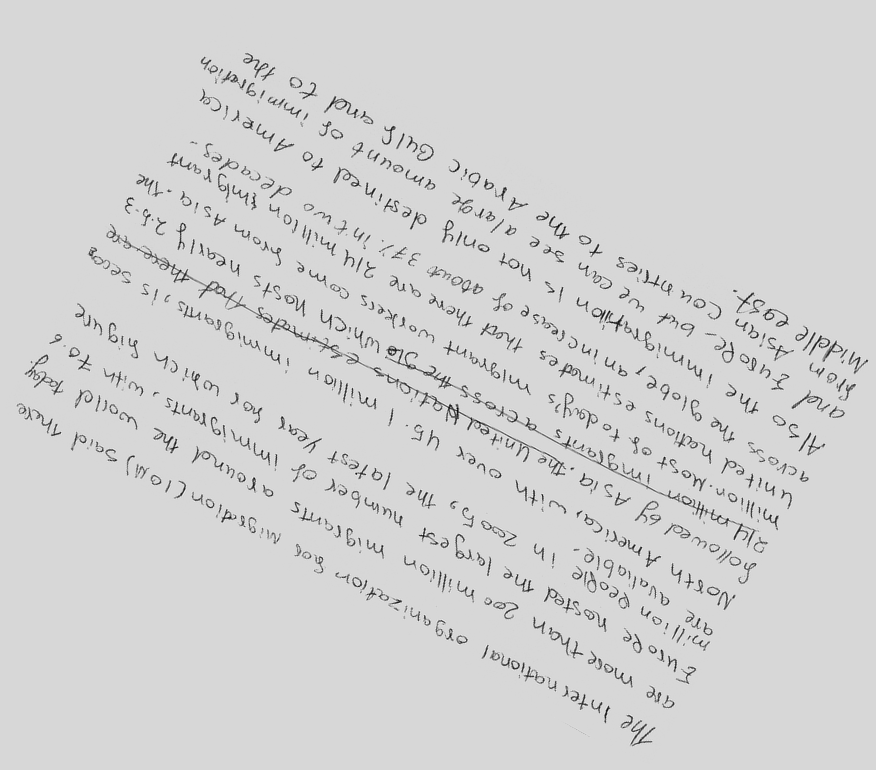 The International organization for migration (IOM) said there
are more than 200 million migrants around the world today.
Europe hosted the largest number of immigrants, with 70.6
million People in 2005, the latest year for which figure
are avaliable.
North America, with over 45.1 million immigrants, is
followed by Asia. The United Nations estimates that there are
214 million imigrants across the which hosts nearly 25.3
million. Most of today's migrant workers come from Asia. the
united nations estimates that there are 214 million imigrant
across the globe, an increase of about 37% in two decades.
Also the immigration is not only destined to America
and Europe - but we can see a large amount of immigration
from Asian Countries to the Arabic Gulf and to the
Middle east.